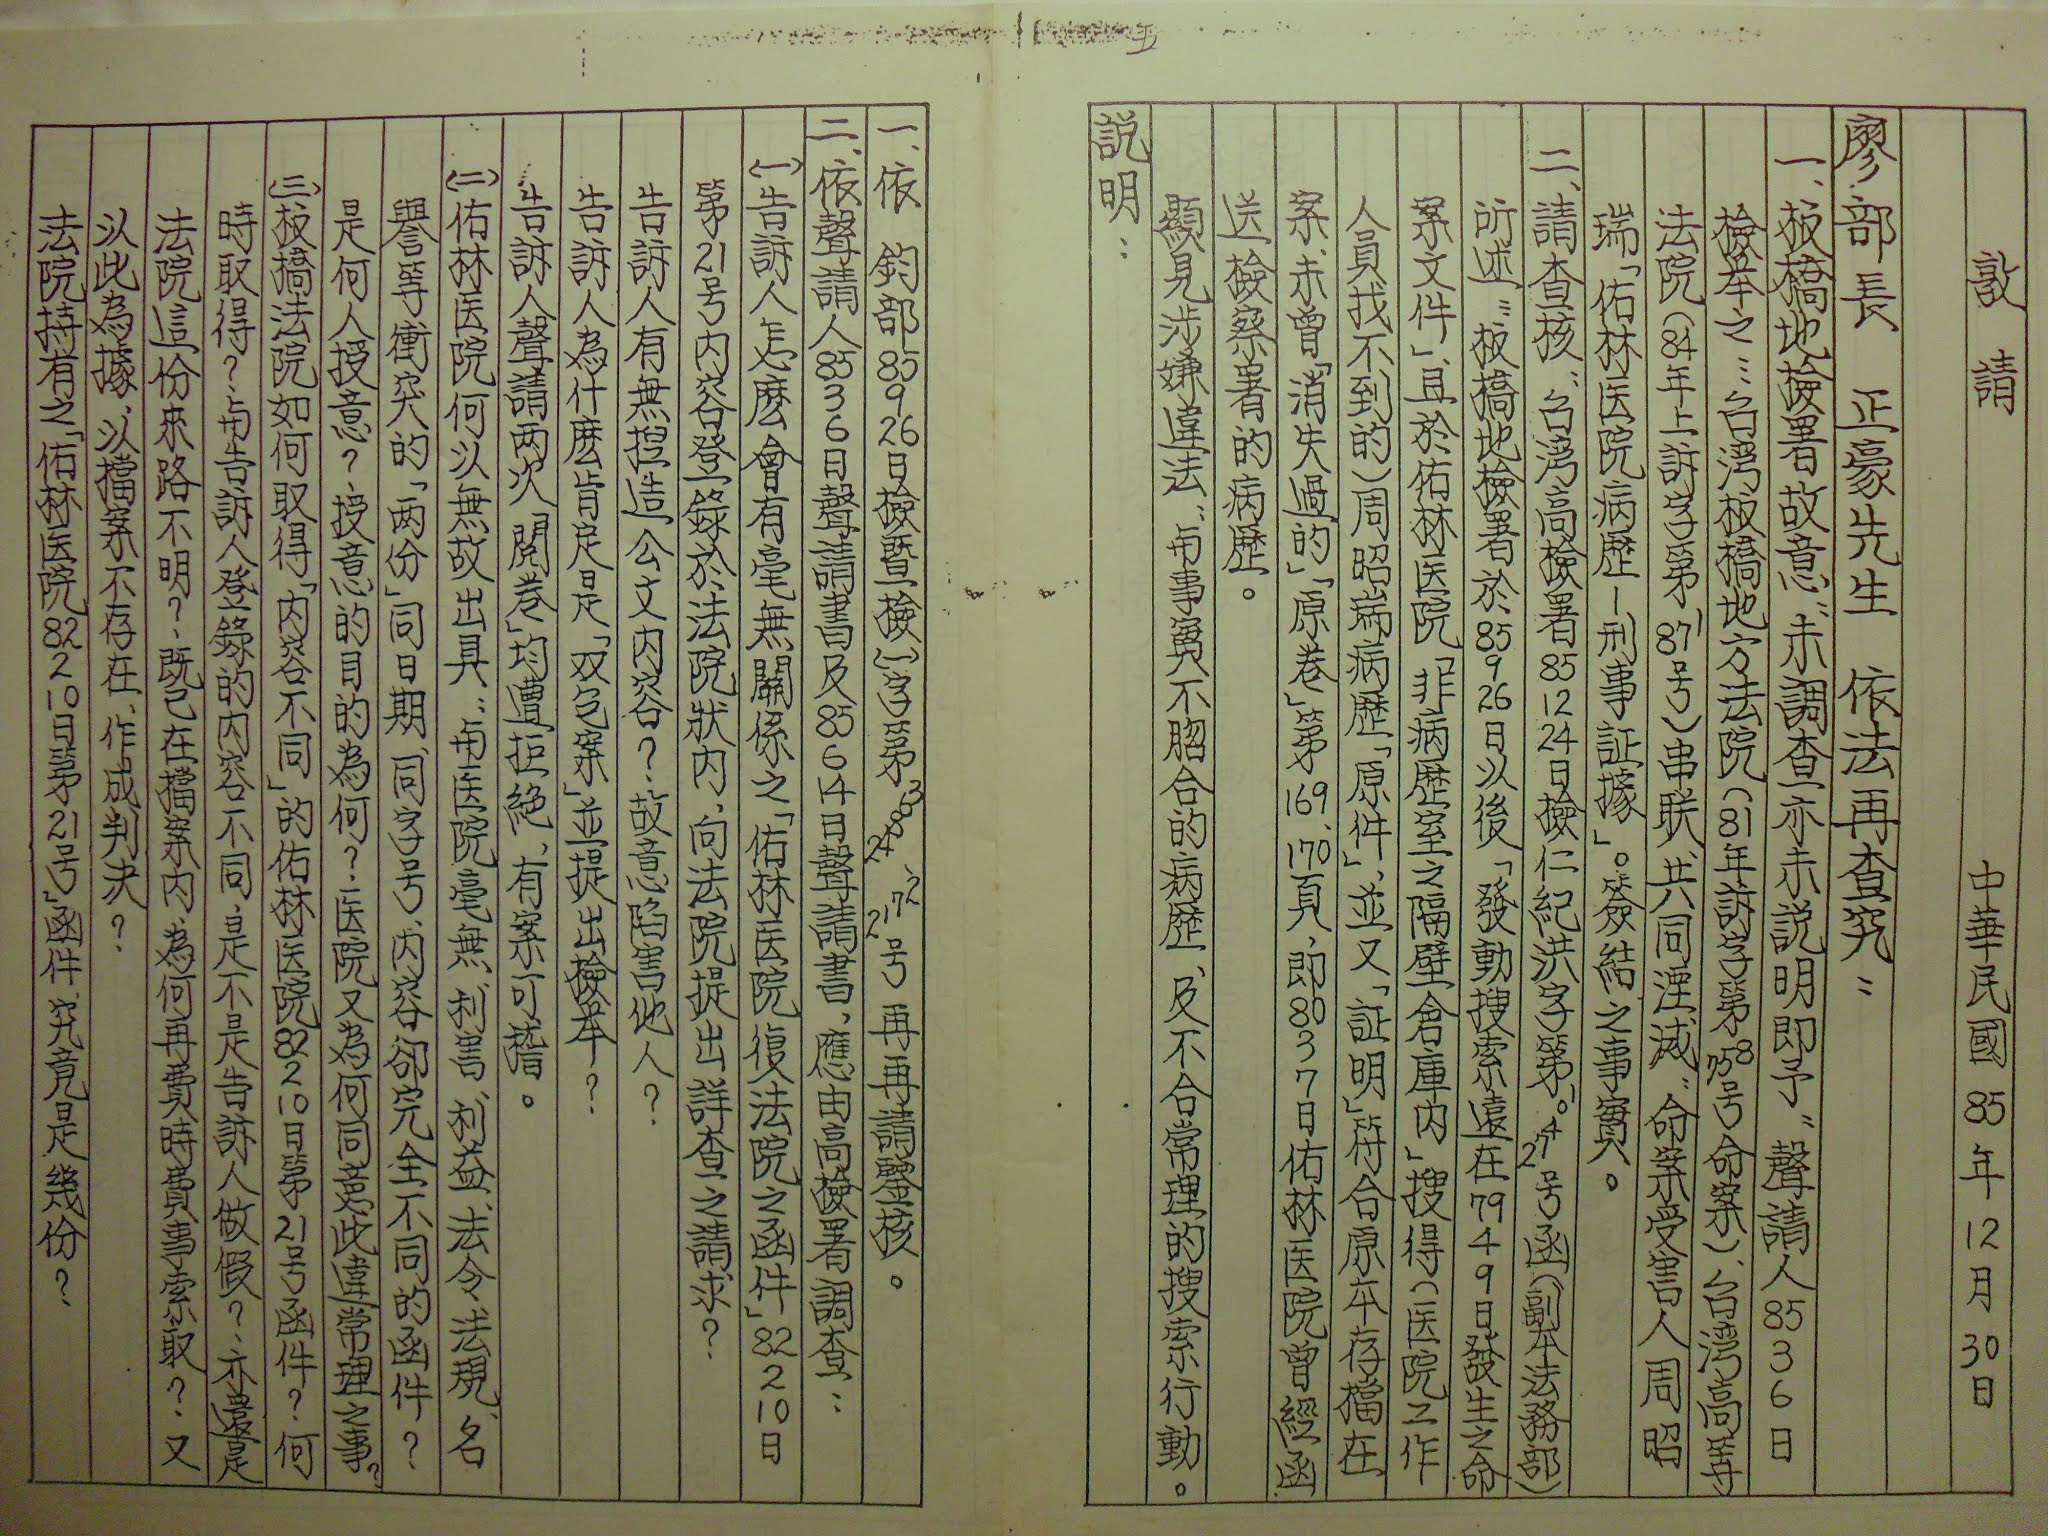 敦請　中華民國85年12月30日
廖部長　正豪先生　依法再查究：
一、板橋地檢署故意〝未調查亦未説明即予〞聲請人85 3 6日
檢举之：〝台湾板橋地方法院（81年訴字第 号命案）、台湾高等
法院（84年上訴字第 号）串联、共同湮滅〞命案受害人周昭
瑞「佑林医院病歴－刑事証據」。簽結之事實。
二、請查核〝台湾高檢署85 12 24日檢仁紀洪字第 号函（副本法務部）
所述〞板橋地檢署於85 9 26日以後「發動搜索遠在79 4 9日發生之命
案文件」、且於佑林医院「非病歴室之隔壁倉庫内」搜得（医院工作
人員找不到的）周昭瑞病歴「原件」、並又「証明」符合原本存檔在
案、未曾「消失過的」「原卷」第169、170頁，即80 3 7日佑林医院曾經函
送檢察署的病歴。
顯見涉嫌違法〝与事實不脗合的病歴、及不合常理的搜索行動。
説明：
一、依　鈞部85 9 26日檢暨檢(一)字第 号 再再請鑒核。
二、依聲請人85 3 6日聲請書及85 6 14日聲請書，應由高檢署調查：
(一)告訴人怎麽會有毫無關係之「佑林医院復法院之函件」82 2 10日
第21号内容登錄於法院狀内，向法院提出詳查之請求？
告訴人有無捏造公文内容？故意陷害他人？
告訴人為什麽肯定是「双包案」並提出檢举？
告訴人聲請两次「閱卷」均遭拒絶，有案可稽。
(二)佑林医院何以無故出具〝与医院毫無利害、利益、法令、法規、名
譽等衝突的「两份」同日期、同字号、内容卻完全不同的函件？
是何人授意？授意的目的為何？医院又為何同意此違常理之事？
(三)板橋法院如何取得「内容不同」的佑林医院82 2 10日第21号函件？何
時取得？与告訴人登錄的内容不同，是不是告訴人做假？亦還是
法院這份來路不明？既已在檔案内，為何再費時費事索取？又
以此為據，以檔案不存在，作成判決？
法院持有之「佑林医院82 2 10日第21号」函件，究竟是幾份？